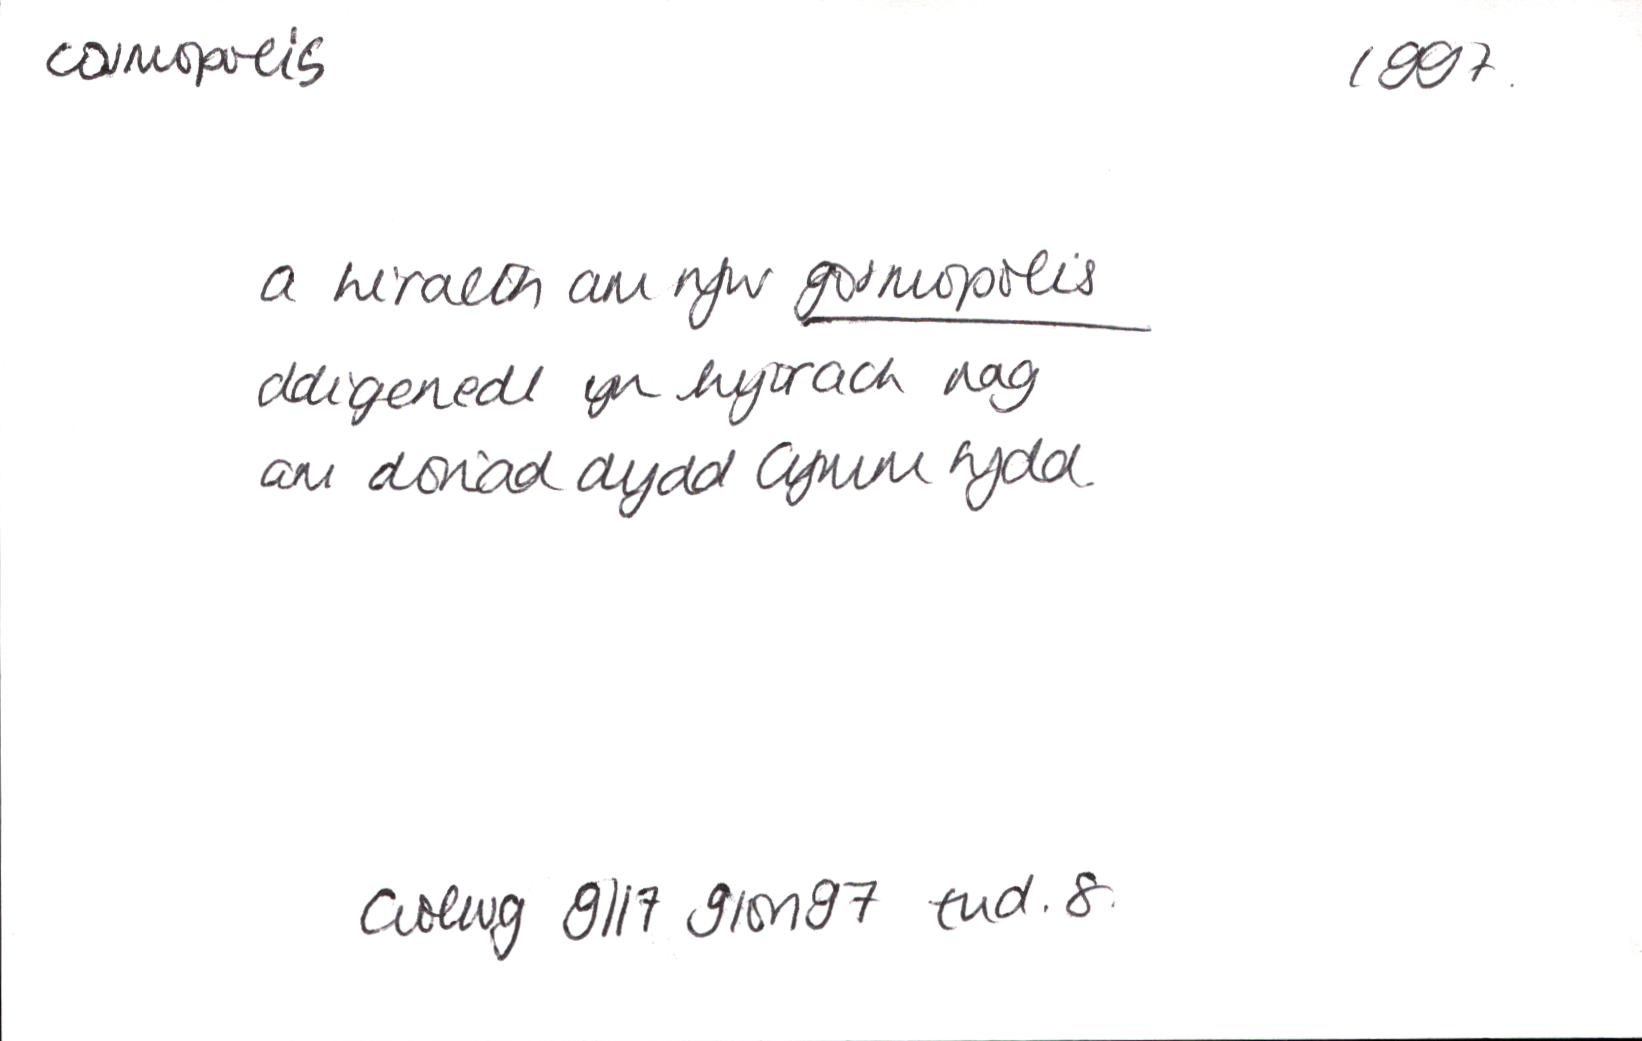 cosmopolis 1997.
a hiraeth am ryw gosmopolis
ddigenedl yn hytrach nag
am doriad dydd Cymru fydd.
Golwg 9/17 9Ion97 tud. 8.